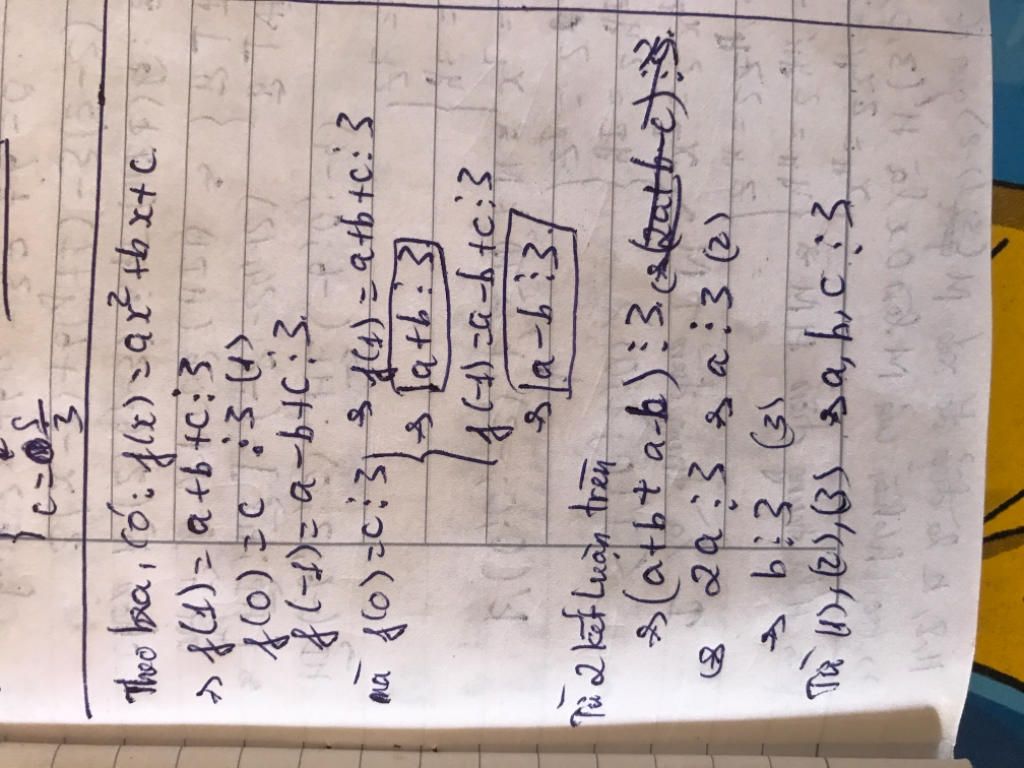 c = c/3
Theo bra, có: f(x) = ax² + bx + c
=> f(1) = a + b + c ⋮ 3
f(0) = c ⋮ 3 (1)
f(-1) = a - b + c ⋮ 3
mà f(0) = c ⋮ 3 => f(1) = a + b + c ⋮ 3
=> a + b ⋮ 3
f(-1) = a - b + c ⋮ 3
=> a - b ⋮ 3
Từ 2 kết luận trên
=> (a + b + a - b) ⋮ 3 (=> (2a + b - c) ⋮ 3
(=> 2a ⋮ 3 => a ⋮ 3 (2)
=> b ⋮ 3 (3)
Từ (1), (2), (3) => a, b, c ⋮ 3